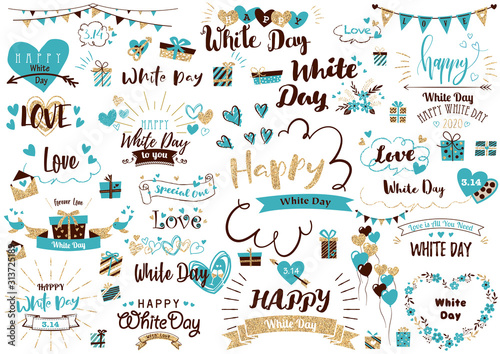 3.14
HAPPY
White
Day
White Day
HAPPY
White Day
Love
White
Day
LOVE
happy
White Day
HAPPY WHITE DAY
2020
LOVE
HAPPY
White Day
to you
Love
Happy
White Day
Love
White Day
3.14
Special One
Forever Love
White Day
Love
Love is All You Need
WHITE DAY
HAPPY
White Day
3.14
White Day
HAPPY
White Day
With Love
3.14
HAPPY
White Day
White
Day
Adobe Stock | #313725185